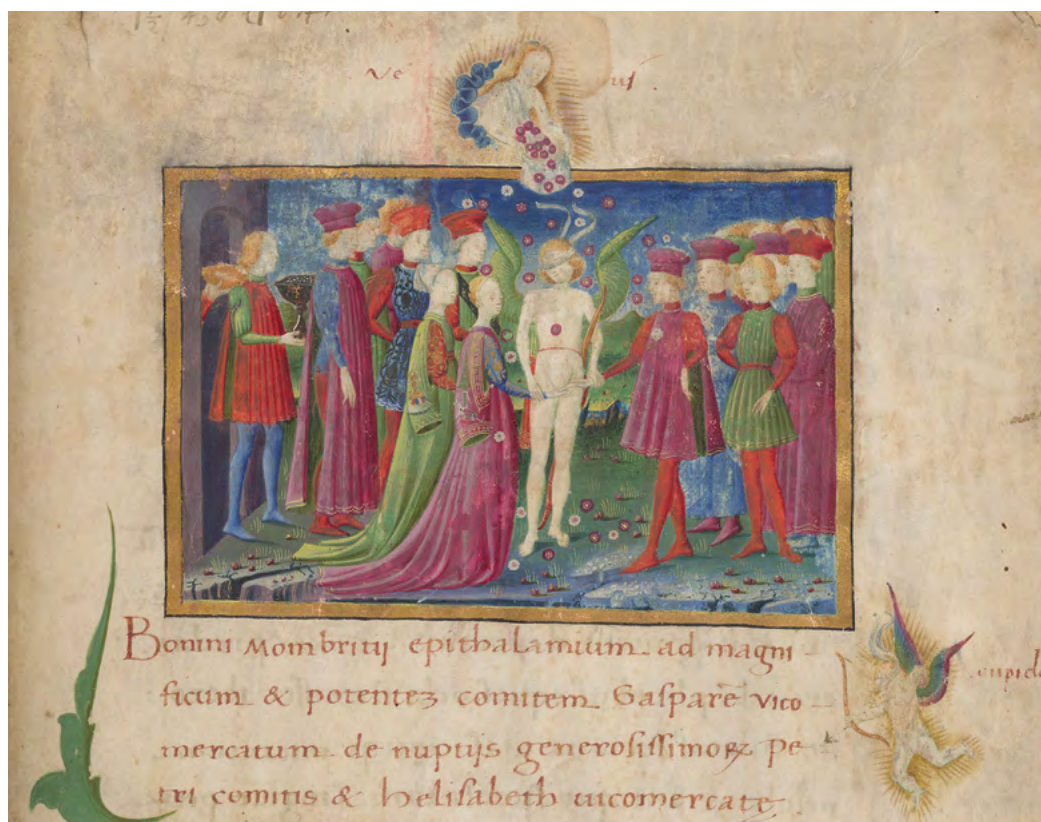 Ve us
Bonini Mombritij epithalamium ad magni-
ficum & potentez comitem Gasparē vico-
mercatum de nuptijs generosissimoꝝ pe-
tri comitis & helisabeth uicomercatę
cupido